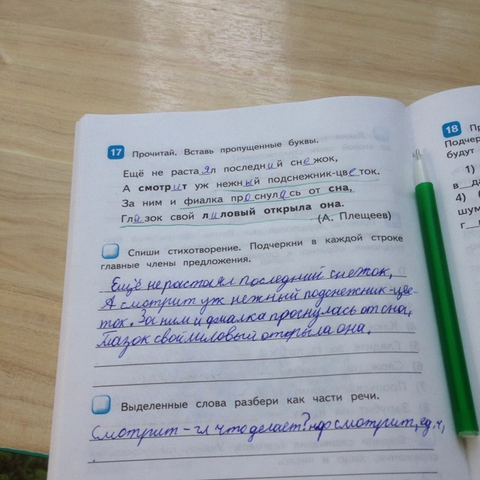 17 Прочитай. Вставь пропущенные буквы.
Ещё не растаял последний снежок,
А смотрит уж нежный подснежник-цветок.
За ним и фиалка проснулась от сна,
Глазок свой лиловый открыла она.
(А. Плещеев)
Спиши стихотворение. Подчеркни в каждой строке
главные члены предложения.
Ещё не растаял последний снежок,
А смотрит уж нежный подснежник-цве-
ток. За ним и фиалка проснулась от сна,
Глазок свой лиловый открыла она.
Выделенные слова разбери как части речи.
Смотрит – гл что делает? нф смотрит, ед. ч,
18
Подчерк
будут
1)
4)
шум